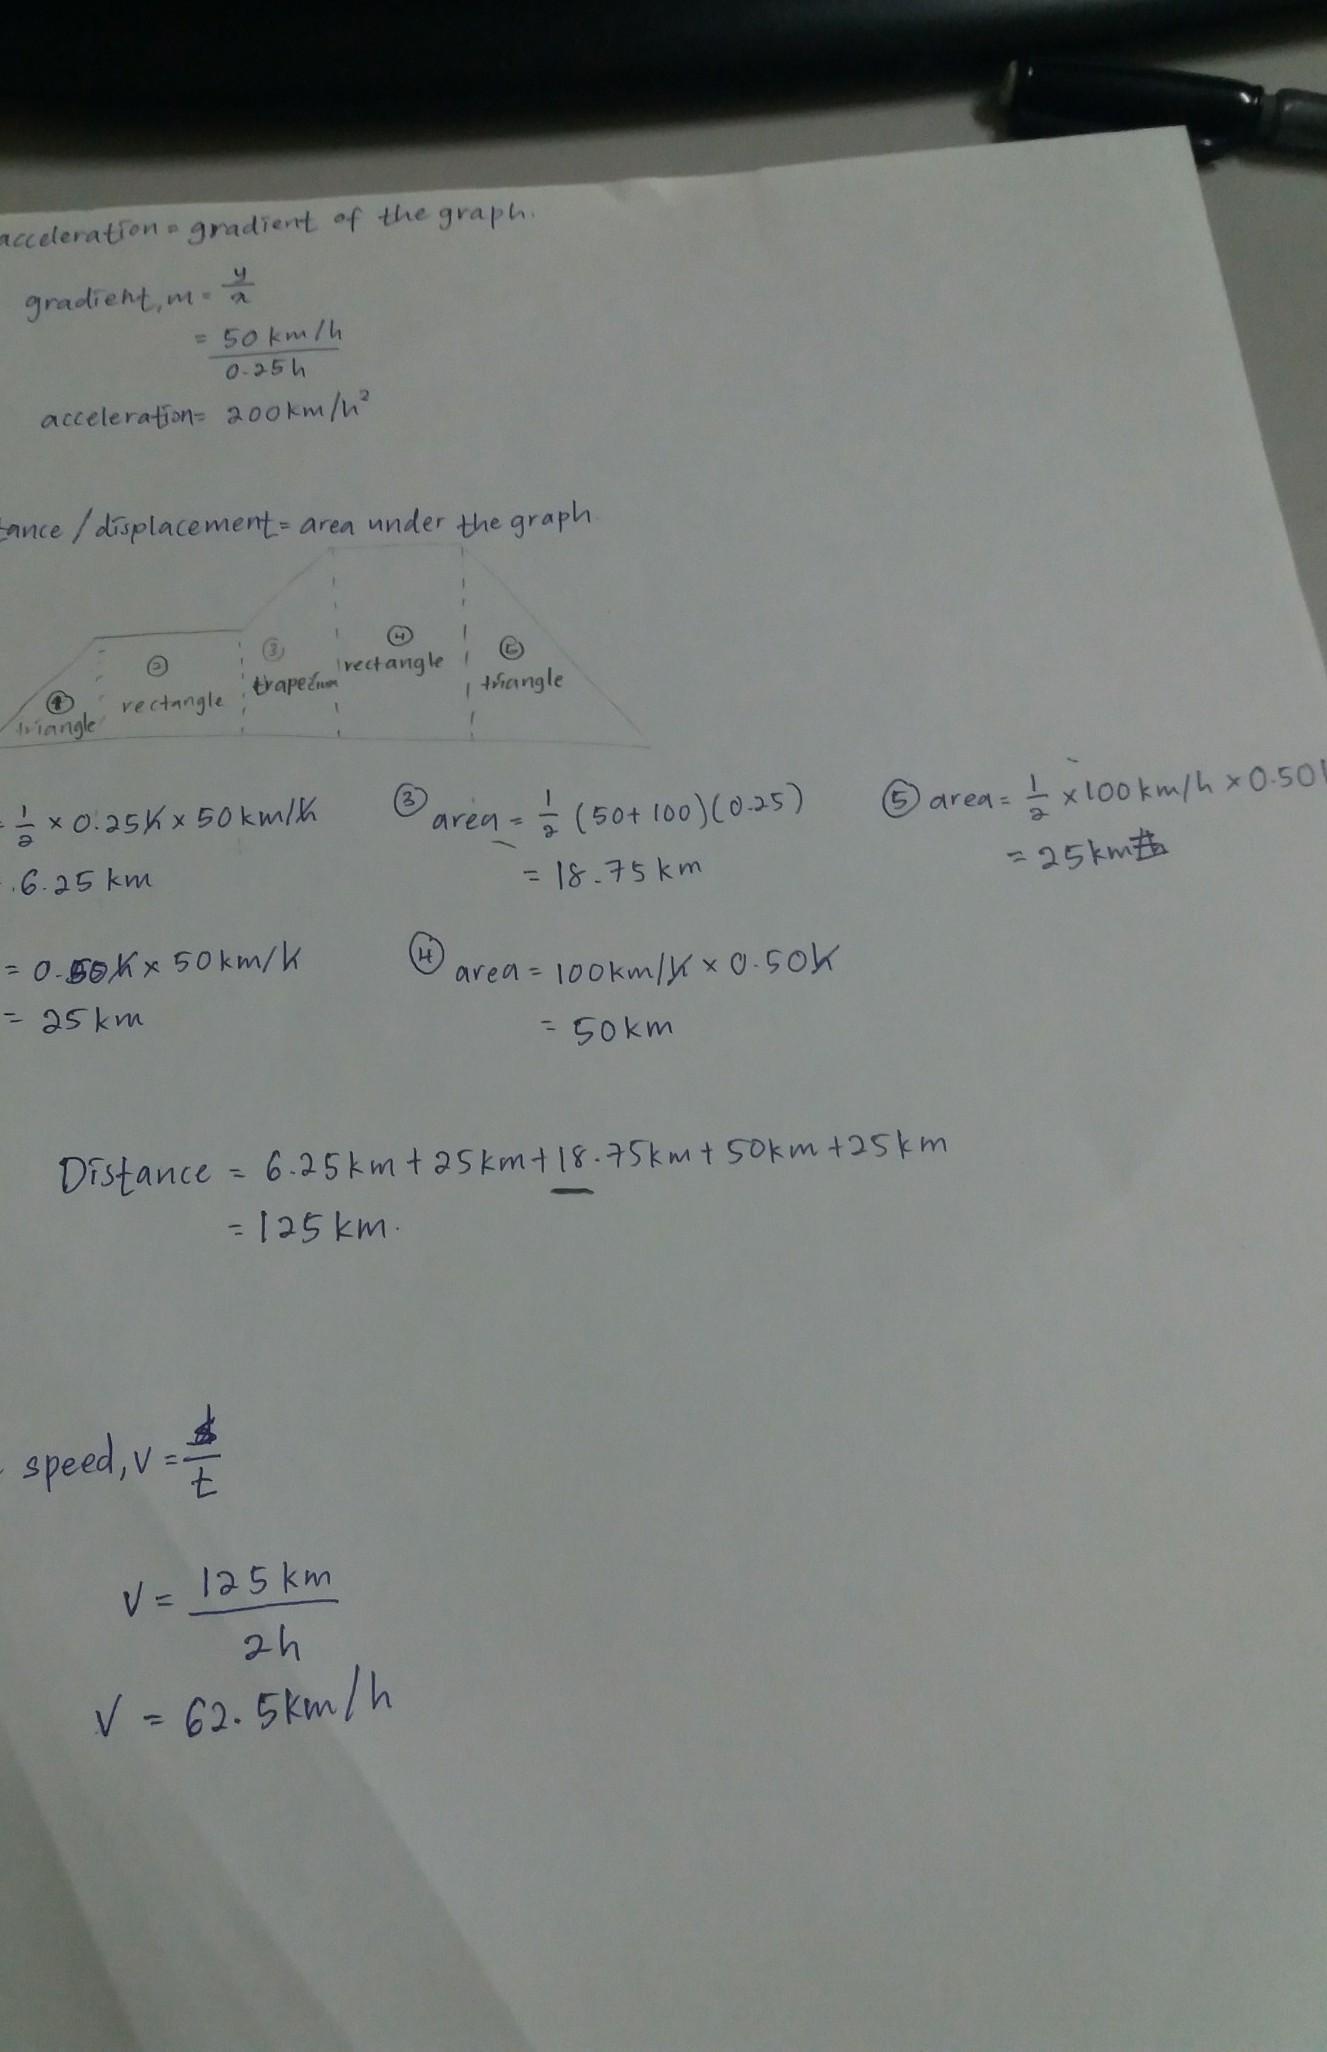 acceleration = gradient of the graph.
gradient, m = y/x
= 50 km/h / 0.25h
acceleration = 200 km/h²
tance / displacement = area under the graph.
① triangle
② rectangle
③ trapezium
④ rectangle
⑤ triangle
= 1/2 × 0.25h × 50 km/h
= 6.25 km
③ area = 1/2 (50 + 100)(0.25)
= 18.75 km
⑤ area = 1/2 × 100 km/h × 0.50
= 25 km
= 0.50h × 50 km/h
= 25 km
④ area = 100 km/h × 0.50h
= 50 km
Distance = 6.25 km + 25 km + 18.75 km + 50 km + 25 km
= 125 km.
speed, v = d/t
v = 125 km / 2h
v = 62.5 km/h